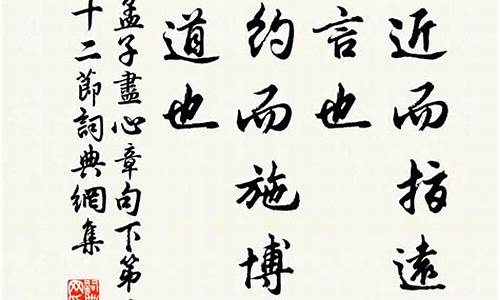 近而指遠
言也
約而施博
道也
孟子盡心章句下第
十二節詞典網集